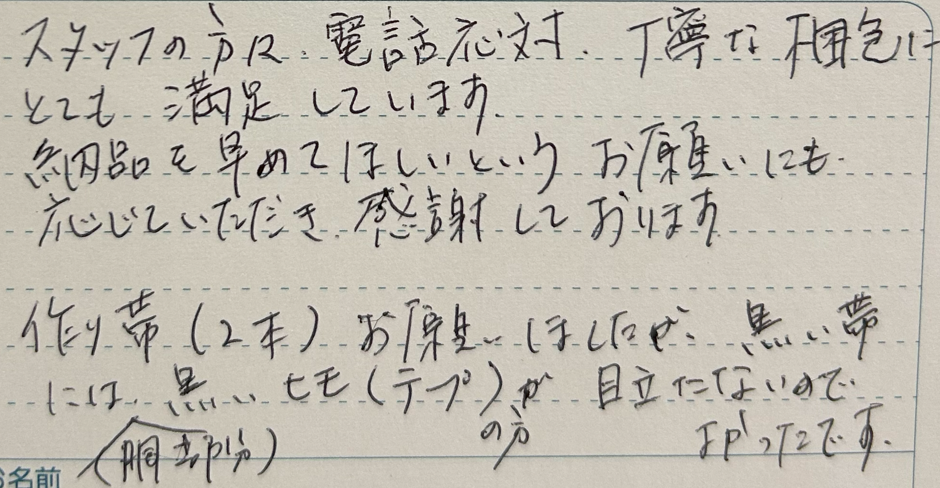 スタッフの方は、電話応対、丁寧な梱包に
とても 満足 しています。
納品を早めてほしいという お願いにも
応じていただき、感謝しております
作り帯(2本)お願いしましたが、黒い帯
には、黒いヒモ(テープ)の方が 目立たないので
(胴部分) よかったです。
お名前